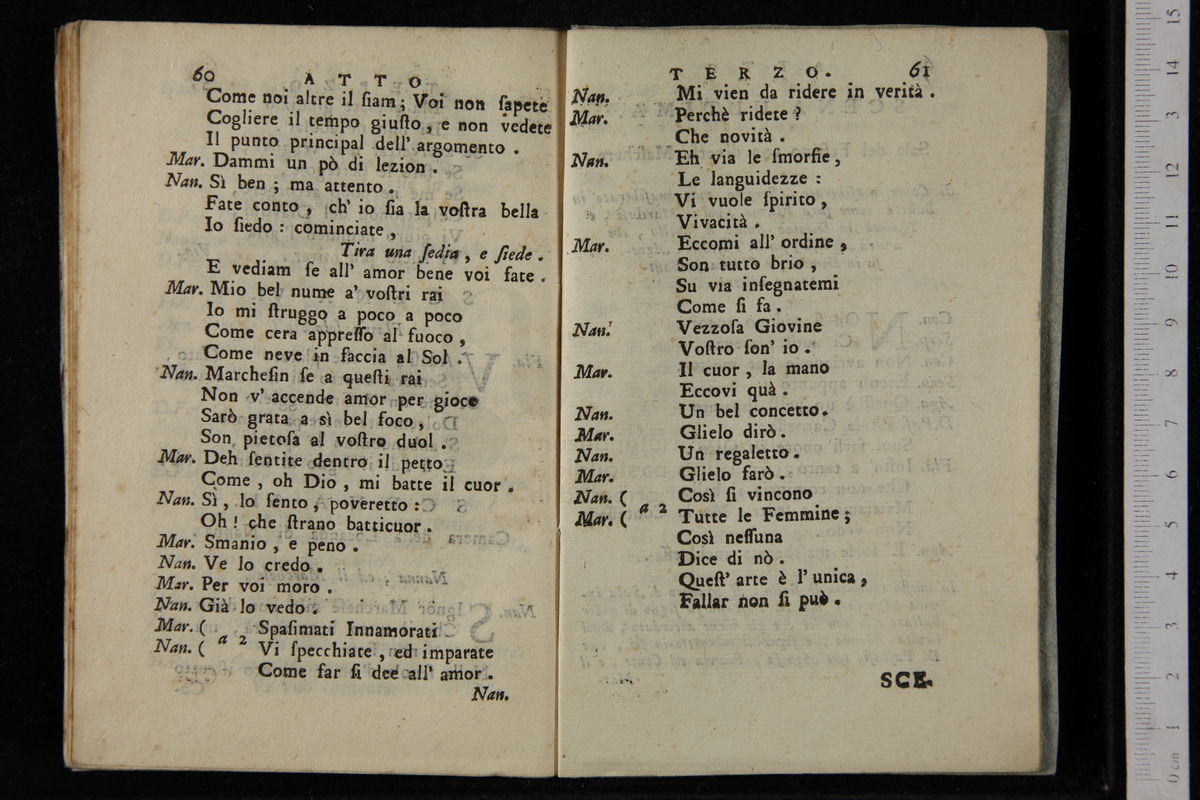 60 ATTO
Come noi altre il ſiam; Voi non ſapete
Cogliere il tempo giuſto, e non vedete
Il punto principal dell' argomento.
Mar. Dammi un pò di lezion.
Nan. Sì ben; ma attento.
Fate conto, ch' io ſia la voſtra bella
Io ſiedo: cominciate,
Tira una ſedia, e ſiede.
E vediam ſe all' amor bene voi fate.
Mar. Mio bel nume a' voſtri rai
Io mi ſtruggo a poco a poco
Come cera appreſſo al fuoco,
Come neve in faccia al Sol.
Nan. Marcheſin ſe a queſti rai
Non v' accende amor per gioco
Sarò grata a sì bel foco,
Son pietoſa al voſtro duol.
Mar. Deh ſentite dentro il petto
Come, oh Dio, mi batte il cuor.
Nan. Sì, lo ſento, poveretto:
Oh! che ſtrano batticuor.
Mar. Smanio, e peno.
Nan. Ve lo credo.
Mar. Per voi moro.
Nan. Già lo vedo.
Mar. ( Spaſimati Innamorati
Nan. ( a 2 Vi ſpecchiate, ed imparate
Come far ſi dee all' amor.
Nan.
TERZO. 61
Nan. Mi vien da ridere in verità.
Mar. Perchè ridete?
Che novità.
Nan. Eh via le ſmorfie,
Le languidezze:
Vi vuole ſpirito,
Vivacità.
Mar. Eccomi all' ordine,
Son tutto brio,
Su via inſegnatemi
Come ſi fa.
Nan. Vezzoſa Giovine
Voſtro ſon' io.
Mar. Il cuor, la mano
Eccovi quà.
Nan. Un bel concetto.
Mar. Glielo dirò.
Nan. Un regaletto.
Mar. Glielo farò.
Nan. ( Così ſi vincono
Mar. ( a 2 Tutte le Femmine;
Così neſſuna
Dice di nò.
Queſt' arte è l' unica,
Fallar non ſi può.
SCE-